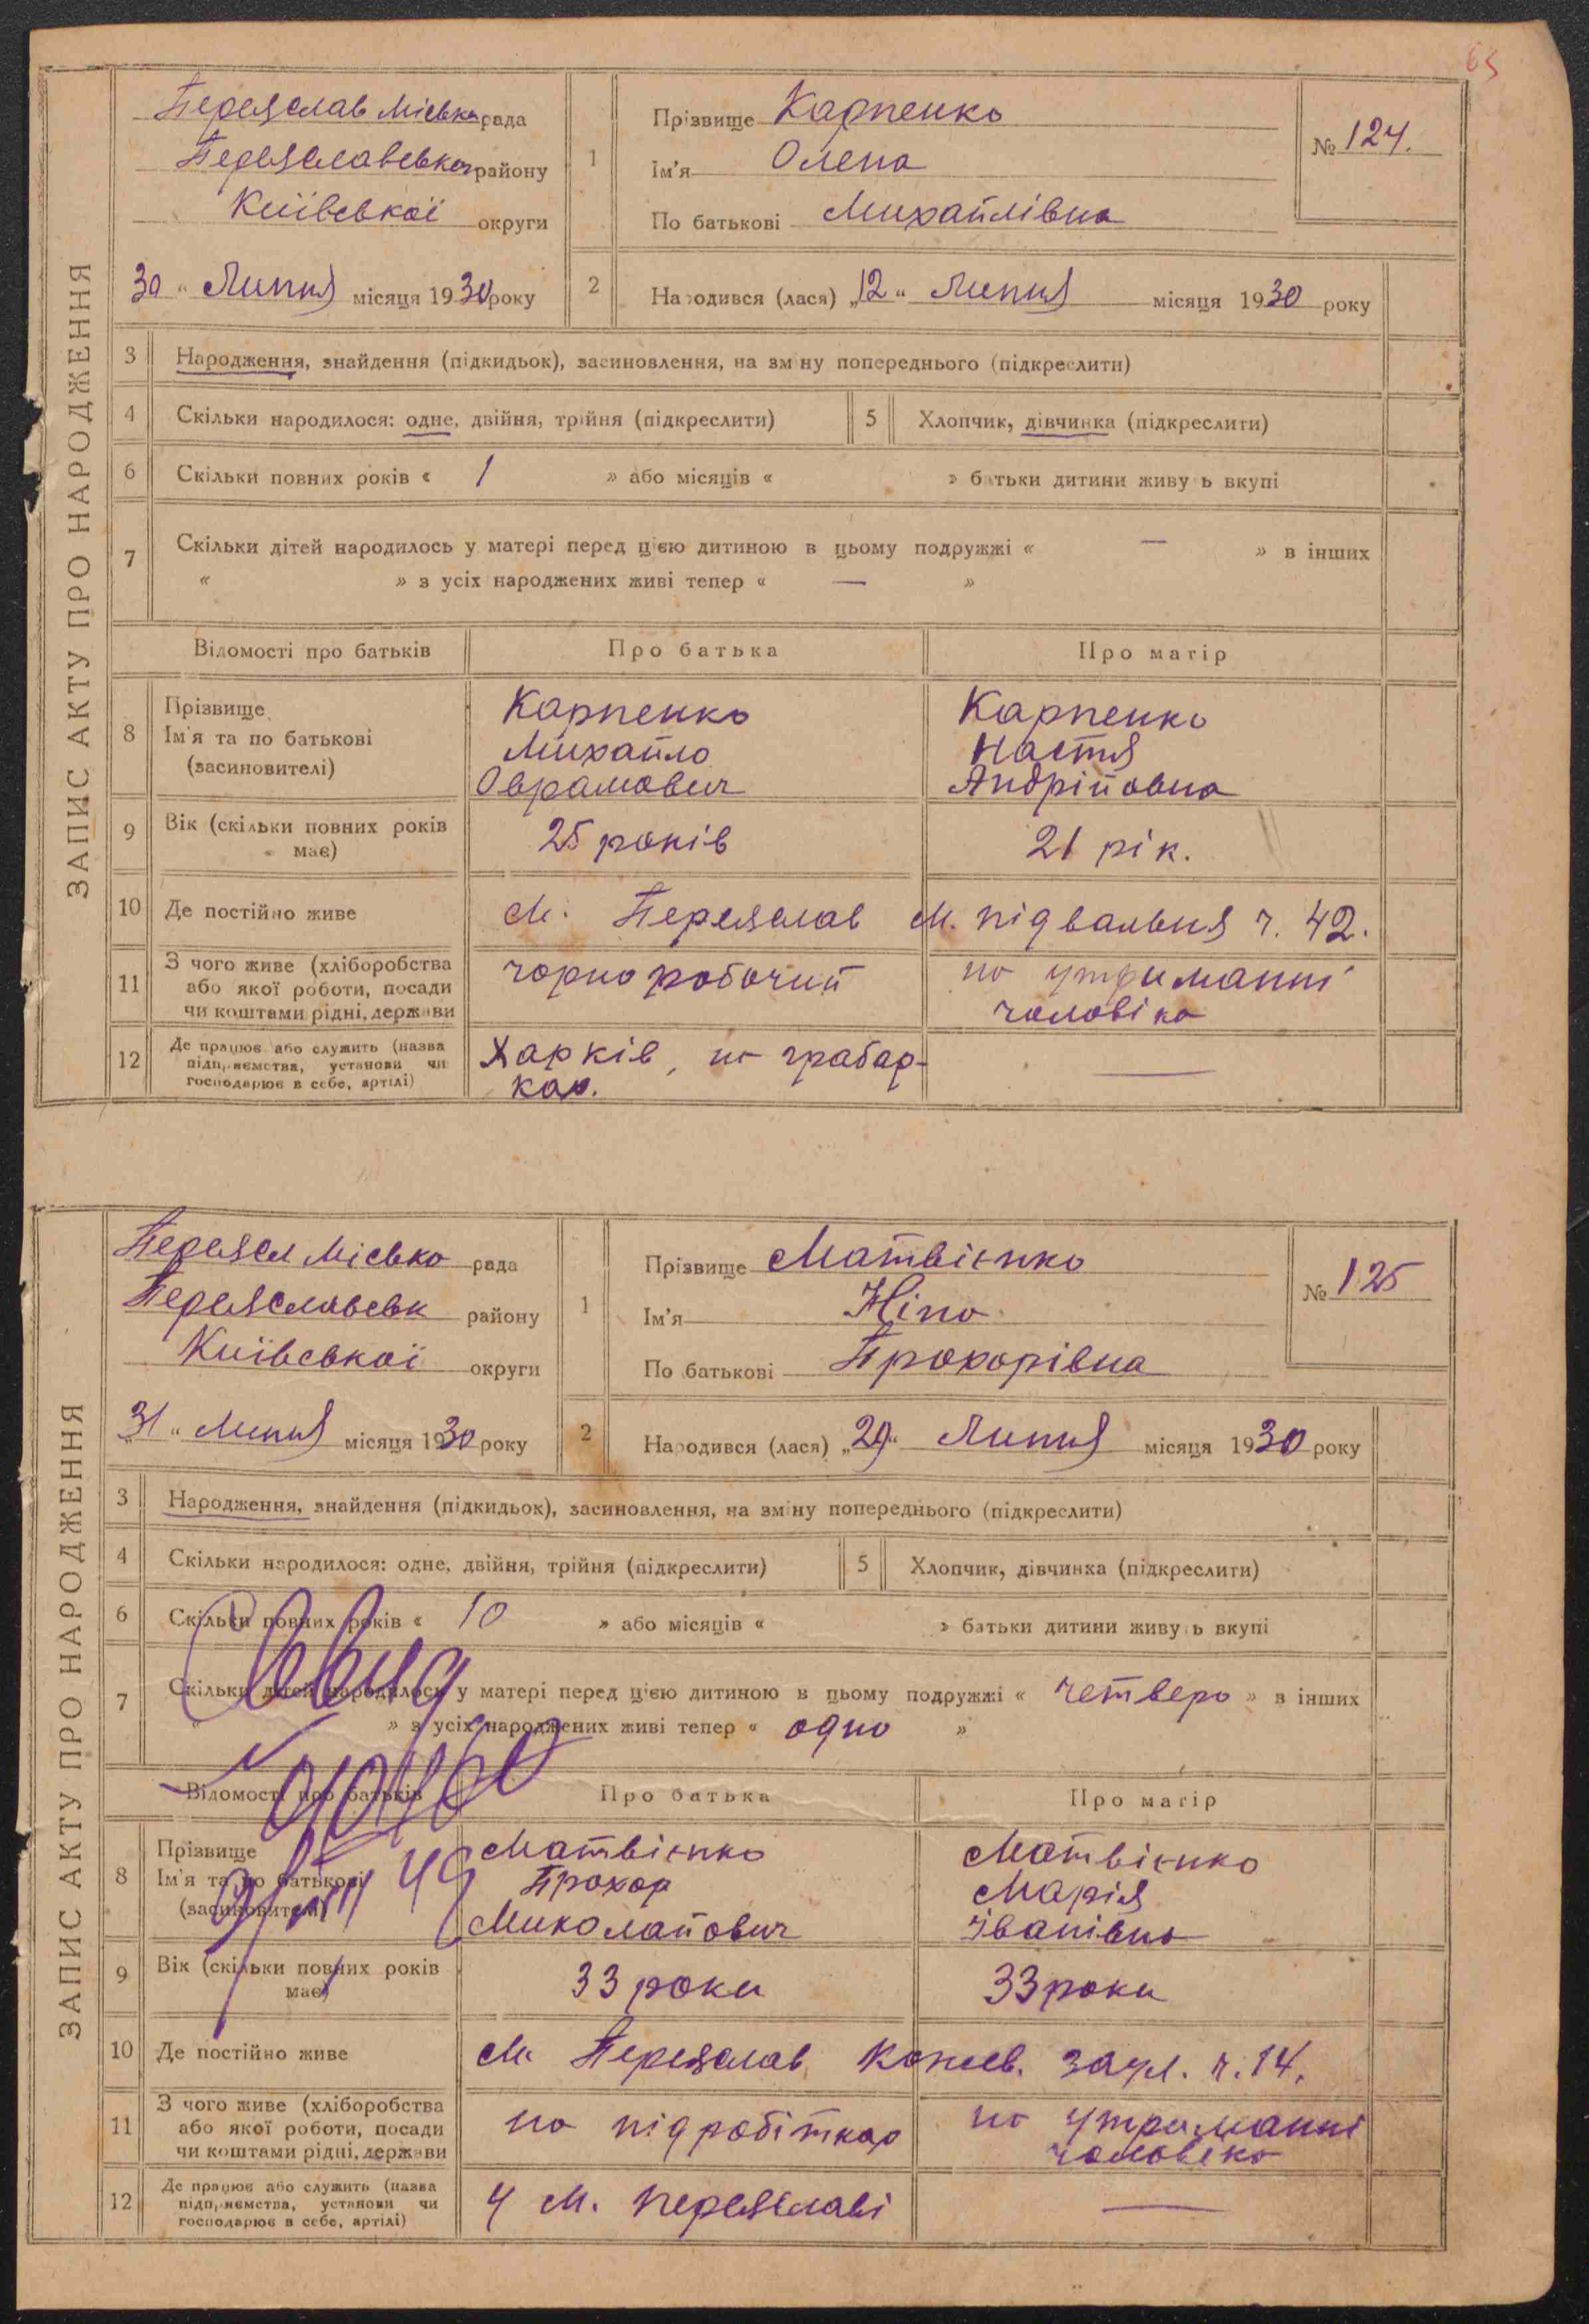 65
ЗАПИС АКТУ ПРО НАРОДЖЕННЯ
Переяслав Міська рада
Переяславськ району
Київської округи
30 " Липня місяця 1930 року
1
Прізвище Карпенко
Ім'я Олена
По батькові Михайлівна
№ 124.
2
Народився (лася) „12" Липня місяця 1930 року
3 Народження, знайдення (підкидьок), засиновлення, на зміну попереднього (підкреслити)
4 Скільки народилося: одне, двійня, трійня (підкреслити) 5 Хлопчик, дівчинка (підкреслити)
6 Скільки повних років « 1 » або місяців « » батьки дитини живуть вкупі
7 Скільки дітей народилось у матері перед цією дитиною в цьому подружжі « — » в інших
« » з усіх народжених живі тепер « — »
Відомості про батьків Про батька Про матір
8 Прізвище Ім'я та по батькові (засиновителі)
Карпенко Михайло Оврамович
Карпенко Настя Андрійовна
9 Вік (скільки повних років має) 25 років 21 рік.
10 Де постійно живе м. Переяслав М. підвальня ч. 42.
11 З чого живе (хліборобства або якої роботи, посади чи коштами рідні, держави
чорноробочий
на утриманні чоловіка
12 Де працює або служить (назва підприємства, установи чи господарює в себе, артілі)
Харків, на грабарках.
—
ЗАПИС АКТУ ПРО НАРОДЖЕННЯ
Переясл Місько рада
Переяславськ району
Київської округи
31 " Липня місяця 1930 року
1
Прізвище Матвієнко
Ім'я Ніна
По батькові Прохорівна
№ 125
2
Народився (лася) „29" Липня місяця 1930 року
3 Народження, знайдення (підкидьок), засиновлення, на зміну попереднього (підкреслити)
4 Скільки народилося: одне, двійня, трійня (підкреслити) 5 Хлопчик, дівчинка (підкреслити)
6 Скільки повних років « 10 » або місяців « » батьки дитини живуть вкупі
7 Скільки дітей народилось у матері перед цією дитиною в цьому подружжі « четверо » в інших
« » з усіх народжених живі тепер « одно »
Відомості про батьків Про батька Про матір
8 Прізвище Ім'я та по батькові (засиновителі)
Матвієнко Прохор Миколайович
Матвієнко Марія Іванівна
9 Вік (скільки повних років має) 33 роки 33 роки
10 Де постійно живе м. Переяслав ч. 14.
11 З чого живе (хліборобства або якої роботи, посади чи коштами рідні, держави
на підробітках
на утриманні чоловіка
12 Де працює або служить (назва підприємства, установи чи господарює в себе, артілі)
У м. Переяславі
—